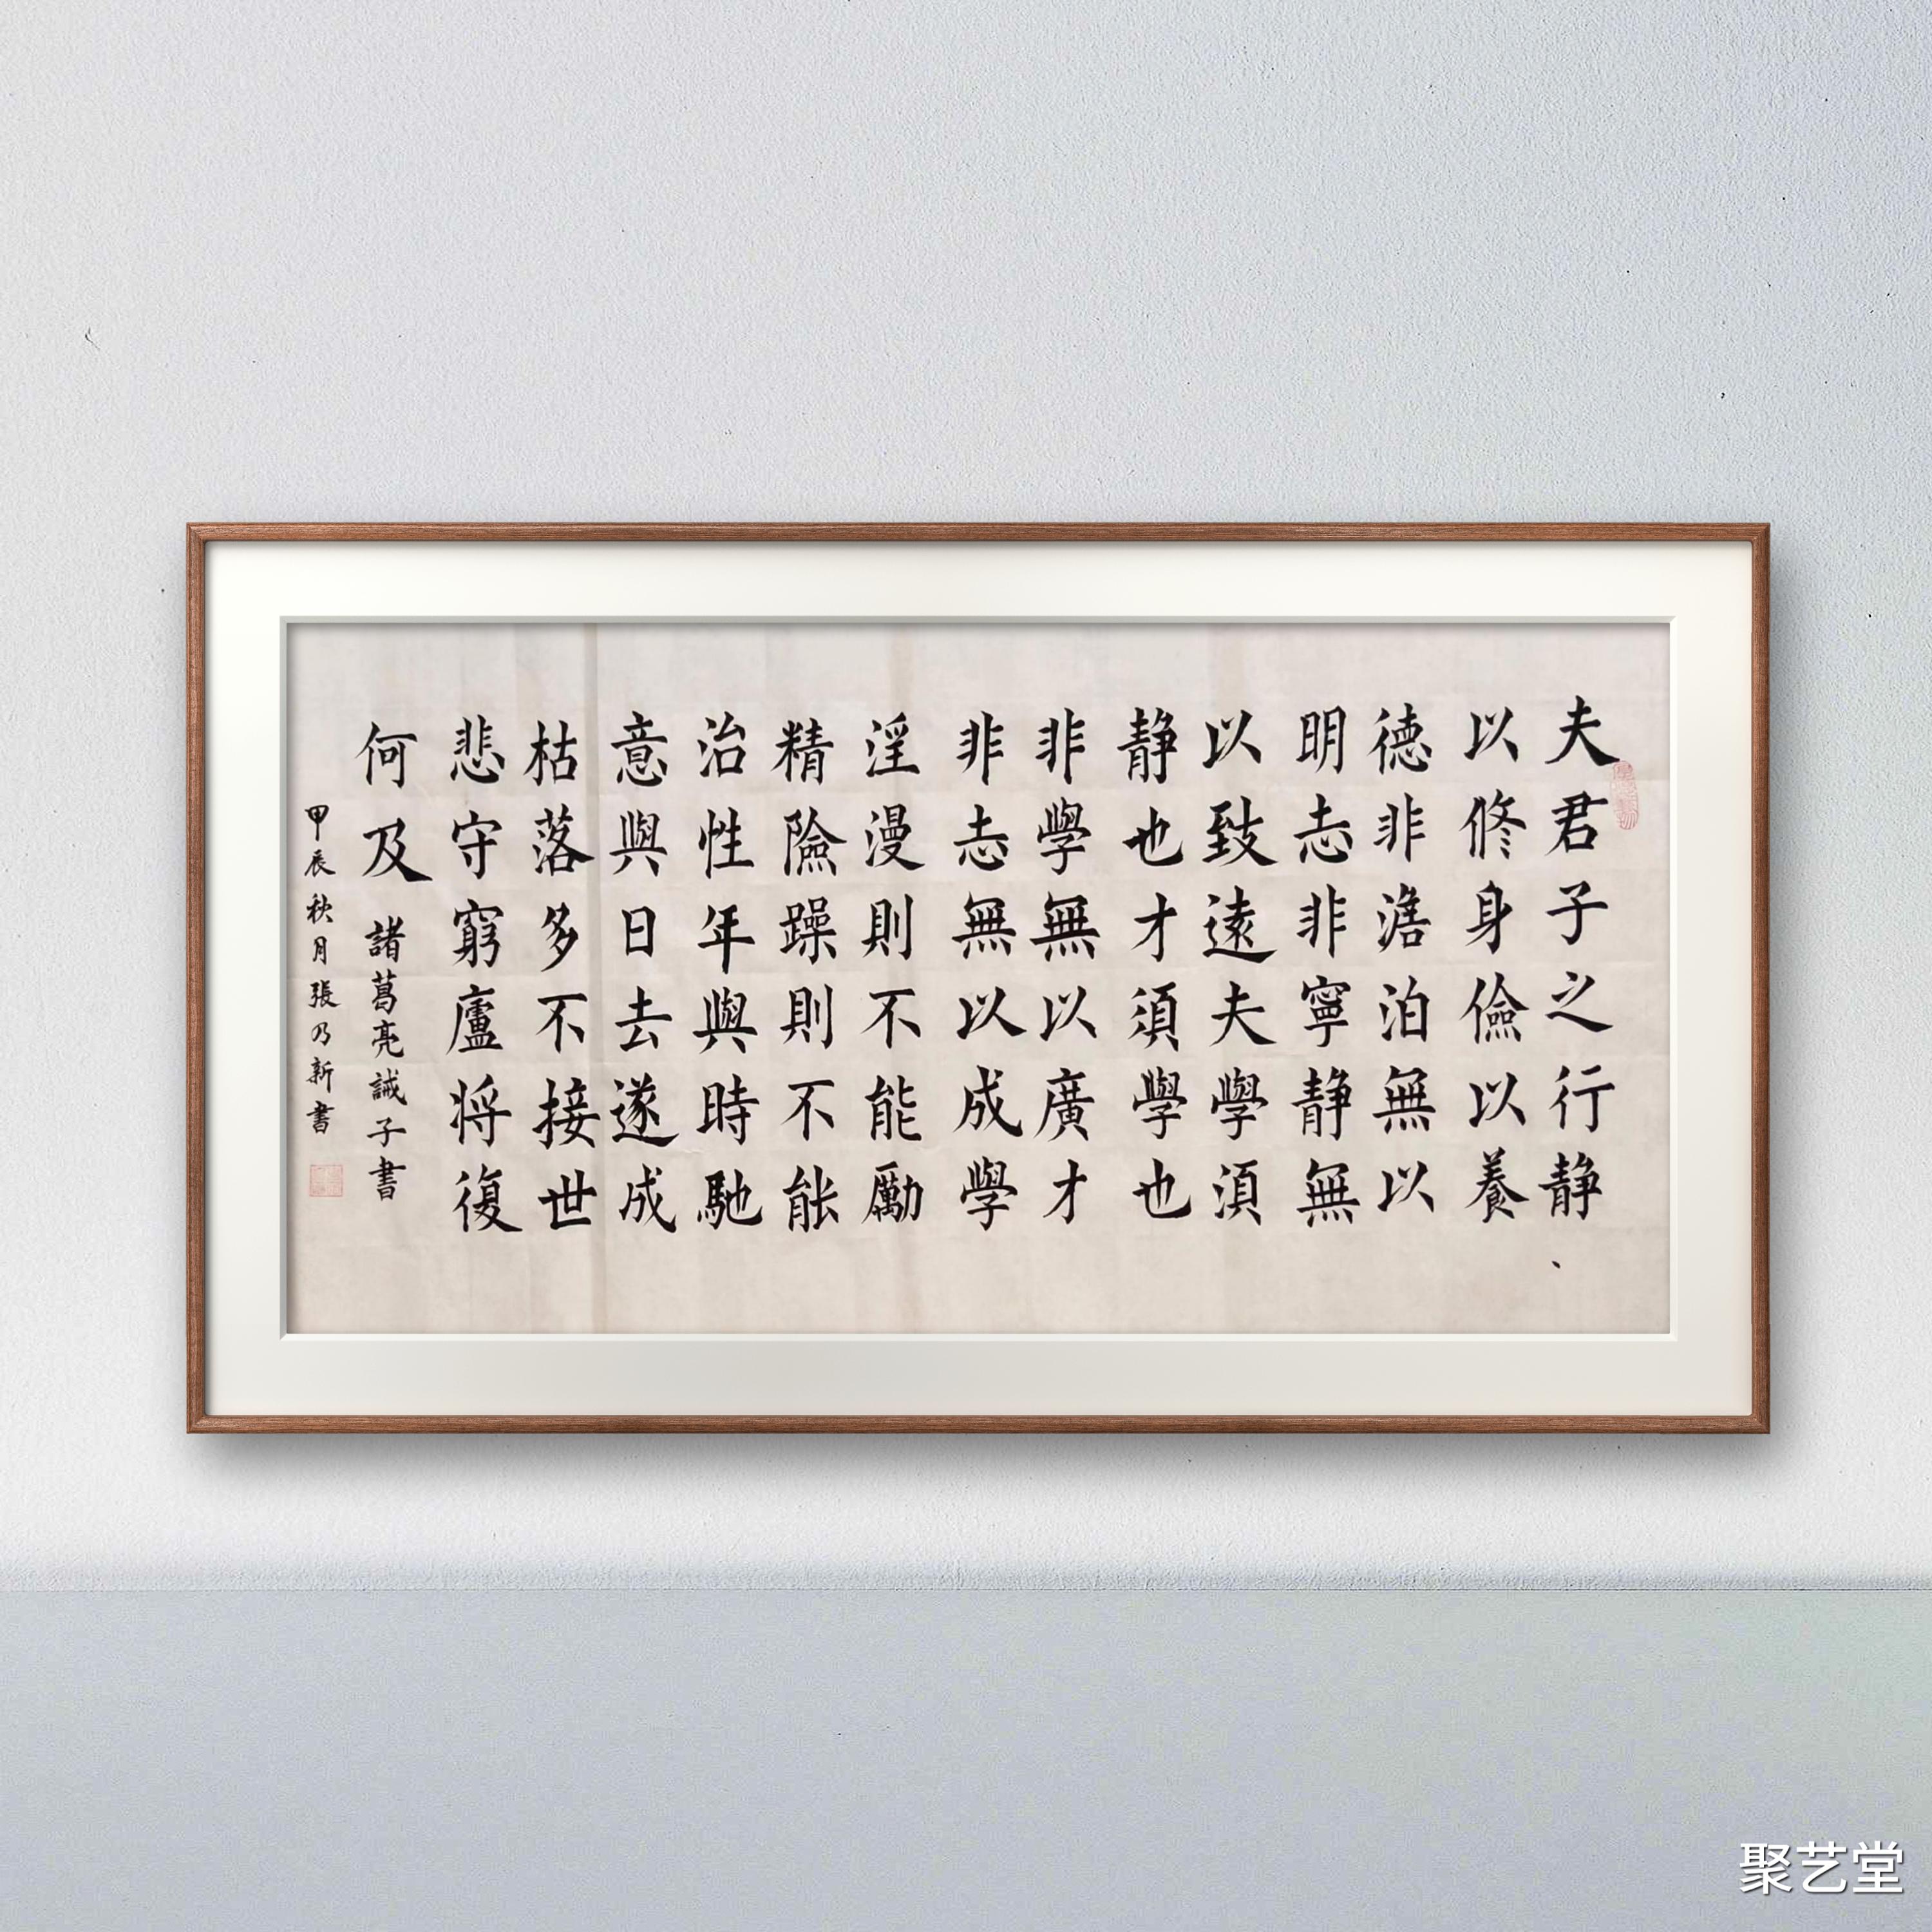 夫君子之行静
以脩身儉以養
德非澹泊無以
明志非寧静無
以致遠夫學須
静也才須學也
非學無以廣才
非志無以成學
淫漫則不能勵
精險躁則不能
治性年與時馳
意與日去遂成
枯落多不接世
悲守窮廬将復
何及
諸葛亮誡子書
甲辰秋月張乃新書
聚艺堂